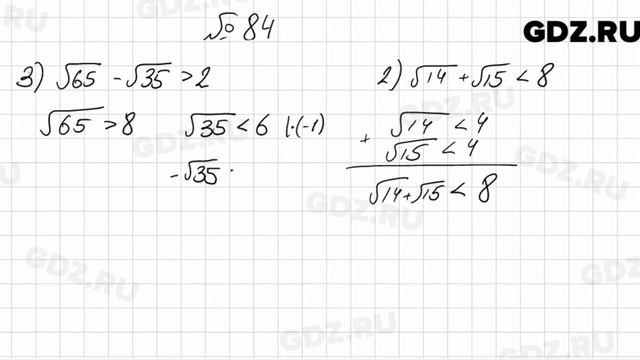 № 84
GDZ.RU
3) √65 - √35 > 2
√65 > 8 √35 < 6 |·(-1)
-√35 .
2) √14 + √15 < 8
+ √14 < 4
√15 < 4
√14 + √15 < 8
GDZ.RU
GDZ.RU
GDZ.RU
GDZ.RU
GDZ.RU
GDZ.RU
GDZ.RU